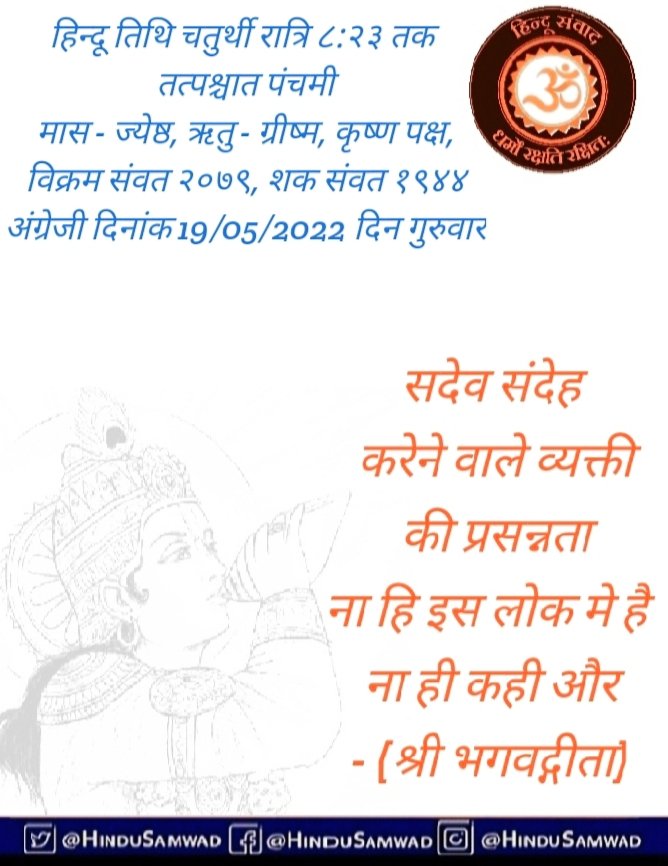 हिन्दू तिथि चतुर्थी रात्रि ८:२३ तक
तत्पश्चात पंचमी
मास - ज्येष्ठ, ऋतु - ग्रीष्म, कृष्ण पक्ष,
विक्रम संवत २०७९, शक संवत १९४४
अंग्रेजी दिनांक 19/05/2022 दिन गुरुवार
हिन्दू संवाद
धर्मो रक्षति रक्षितः
ॐ
सदेव संदेह
करेने वाले व्यक्ती
की प्रसन्नता
ना हि इस लोक मे है
ना ही कही और
- (श्री भगवद्गीता)
@HinduSamwad @HinduSamwad @HinduSamwad